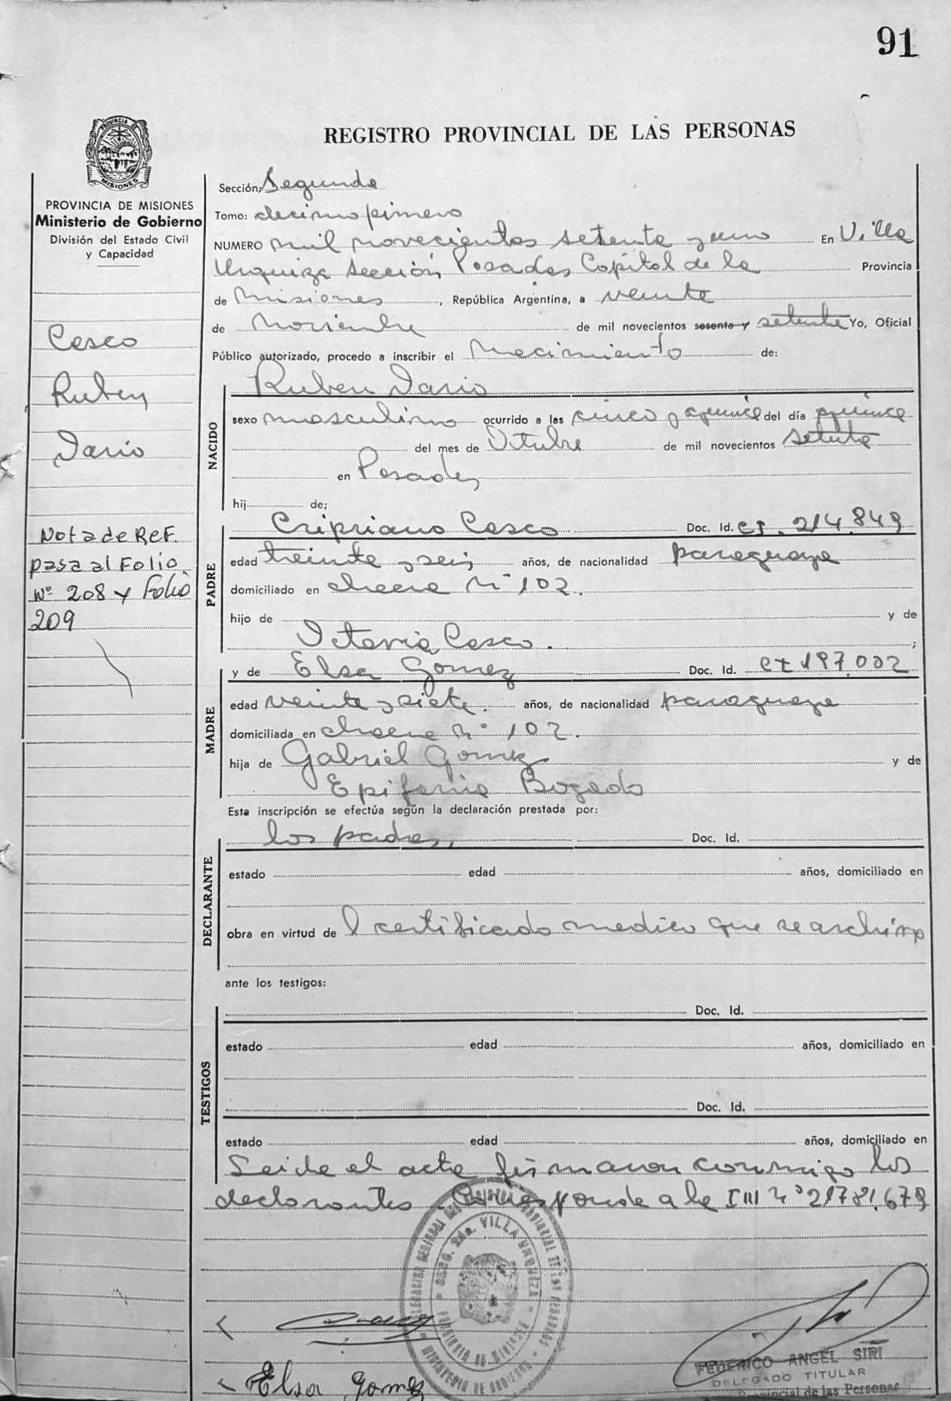 91
REGISTRO PROVINCIAL DE LAS PERSONAS
PROVINCIA DE MISIONES
Ministerio de Gobierno
División del Estado Civil
y Capacidad
Cesco
Ruben
Dario
Nota de Ref.
pasa al Folio
Nº 208 y Folio
209
Sección: Segunda
Tomo: decimo primero
NUMERO mil novecientos setenta y uno En Villa
Urquiza Sección Posadas Capital de la Provincia
de Misiones, República Argentina, a veinte
de Noviembre de mil novecientos sesenta y setenta Yo, Oficial
Público autorizado, procedo a inscribir el Nacimiento de:
NACIDO
Ruben Dario
sexo masculino ocurrido a las cinco y quince del día quince
del mes de Octubre de mil novecientos setenta
en Posadas
hij de;
PADRE
Cripriano Cesco Doc. Id. CI. 214.849
edad treinta y seis años, de nacionalidad paraguaya
domiciliado en chacra Nº 102.
hijo de y de
Octavia Cesco. ;
MADRE
y de Elsa Gomez Doc. Id. CI 197.002
edad veinte y siete. años, de nacionalidad paraguaya
domiciliada en chacra Nº 102.
hija de Gabriel Gomez y de
Epifania Bogado
Esta inscripción se efectúa según la declaración prestada por:
DECLARANTE
los padres, Doc. Id.
estado edad años, domiciliado en
obra en virtud de l certificado medico que se archiva
ante los testigos:
TESTIGOS
Doc. Id.
estado edad años, domiciliado en
Doc. Id.
estado edad años, domiciliado en
Leida el acta firmaron conmigo los
declarantes Corresponde a la IM Nº 21781.679
SECC. 2da. VILLA URQUIZA
PROVINCIA DE MISIONES
MINISTERIO DE GOBIERNO
Elsa Gomez
FEDERICO ANGEL SIRI
DELEGADO TITULAR
Provincial de las Personas